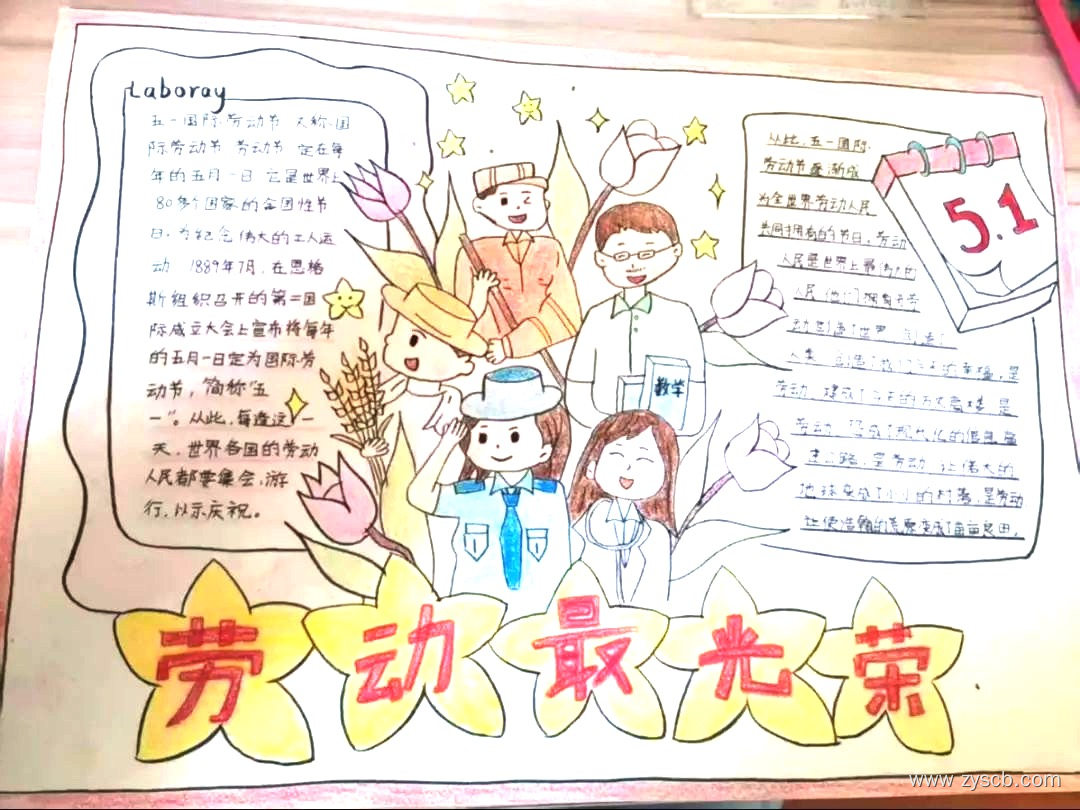 Laboray
五一国际劳动节 又称国
际劳动节 劳动节 定在每
年的五月一日 它是世界上
80多个国家的全国性节
日。为纪念伟大的工人运
动 1889年7月,在恩格
斯组织召开的第二国
际成立大会上宣布将每年
的五月一日定为国际劳
动节,简称"五
一"。从此,每逢这一
天,世界各国的劳动
人民都要集会,游
行,以示庆祝。
从此,五一国际
劳动节逐渐成
为全世界劳动人民
共同拥有的节日。劳动
人民是世界上最伟大的
人民 他们拥有
动 创造了世界
人类 的幸福,是
劳动,建成了今天的万丈高楼 是
劳动 现代化的
公路,是劳动 让伟大的
地球变成了小小的村落,是劳动
让 荒原变成了亩亩良田,
5.1
数学
劳动最光荣
www.zyscb.com